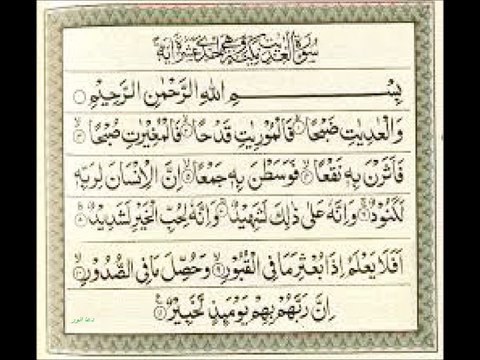 سورة العديت مكية وهي احدى عشرة اية
بِسْمِ اللهِ الرَّحْمٰنِ الرَّحِيْمِ
وَالْعٰدِيٰتِ ضَبْحًا ۙ۱ فَالْمُوْرِيٰتِ قَدْحًا ۙ۲ فَالْمُغِيْرٰتِ صُبْحًا ۙ۳
فَاَثَرْنَ بِهٖ نَقْعًا ۙ۴ فَوَسَطْنَ بِهٖ جَمْعًا ۙ۵ اِنَّ الْاِنْسَانَ لِرَبِّهٖ
لَكَنُوْدٌ ۚ۶ وَاِنَّهٗ عَلٰى ذٰلِكَ لَشَهِيْدٌ ۚ۷ وَاِنَّهٗ لِحُبِّ الْخَيْرِ لَشَدِيْدٌ ؕ۸
اَفَلَا يَعْلَمُ اِذَا بُعْثِرَ مَا فِى الْقُبُوْرِ ۙ۹ وَحُصِّلَ مَا فِى الصُّدُوْرِ ۙ۱۰
اِنَّ رَبَّهُمْ بِهِمْ يَوْمَىِٕذٍ لَّخَبِيْرٌ ۱۱